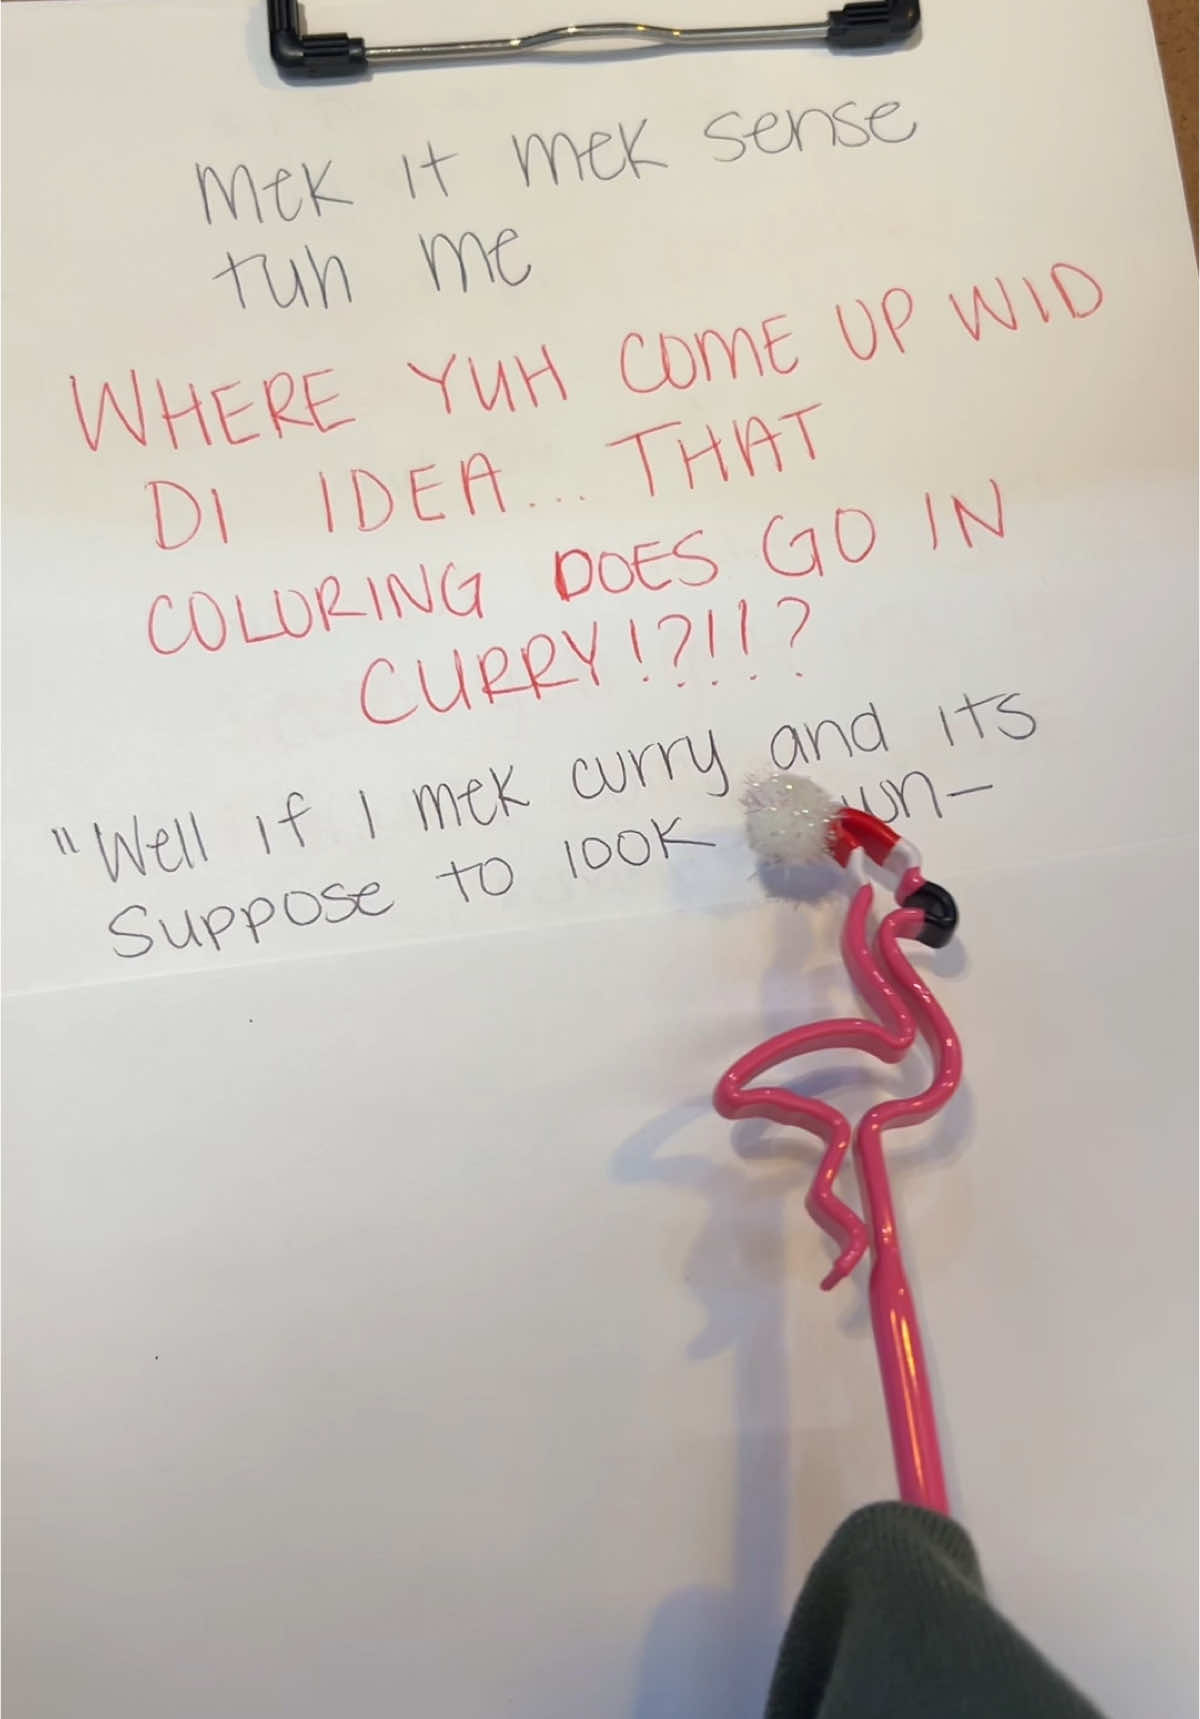 mek it mek sense
tuh me
WHERE YUH COME UP WID
DI IDEA... THAT
COLORING DOES GO IN
CURRY!?!!?
"Well if I mek curry and its
suppose to look